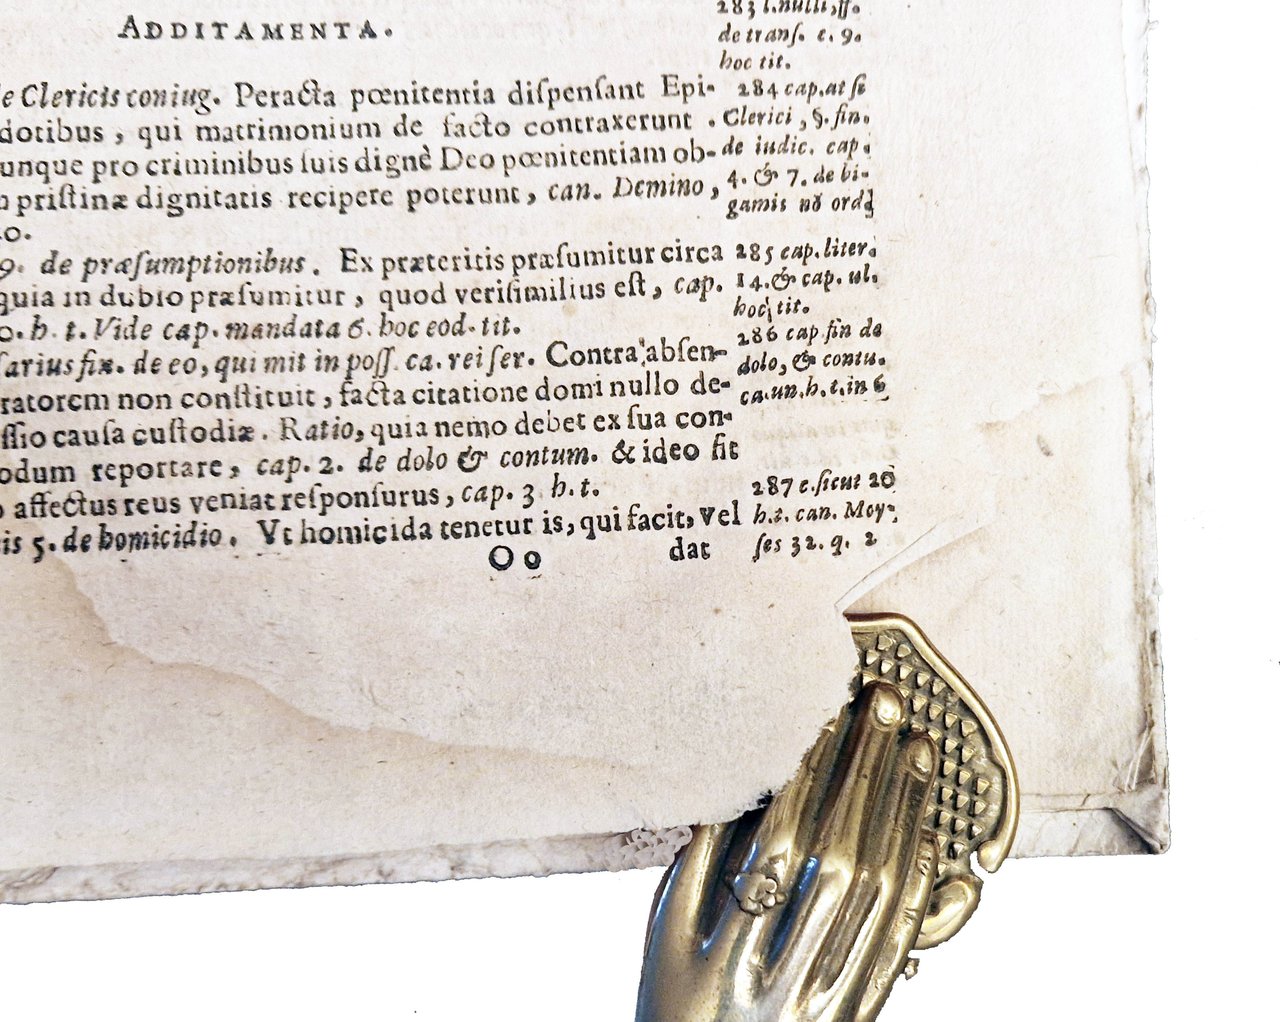 ADDITAMENTA.
e Clericis coniug. Peracta pœnitentia diſpenſant Epi-
dotibus, qui matrimonium de facto contraxerunt.
unque pro criminibus ſuis dignè Deo pœnitentiam ob-
priſtinæ dignitatis recipere poterunt, can. Domino,
o.
9. de præſumptionibus. Ex præteritis præſumitur circa
quia in dubio præſumitur, quod veriſimilius eſt, cap.
o. h. t. Vide cap. mandata 6. hoc eod. tit.
ſarius fix. de eo, qui mit in poſſ. ca. rei ſer. Contra abſen-
ratorem non conſtituit, facta citatione domi nullo de-
ſſio cauſa cuſtodiæ. Ratio, quia nemo debet ex ſua con-
odum reportare, cap. 2. de dolo & contum. & ideo fit
o affectus reus veniat reſponſurus, cap. 3 h. t.
is 5. de homicidio. Vt homicida tenetur is, qui facit, vel
Oo dat
283 l. nulli, ff.
de tranſ. c. 9.
hoc tit.
284 cap. at ſi
Clerici, §. fin.
de iudic. cap.
4. & 7. de bi-
gamis nō ord
285 cap. liter.
14. & cap. ul.
hoc tit.
286 cap. fin de
dolo, & contu.
ca. un. h. t. in 6
287 c. ſicut 20
h. t. can. Moy-
ſes 32. q. 2